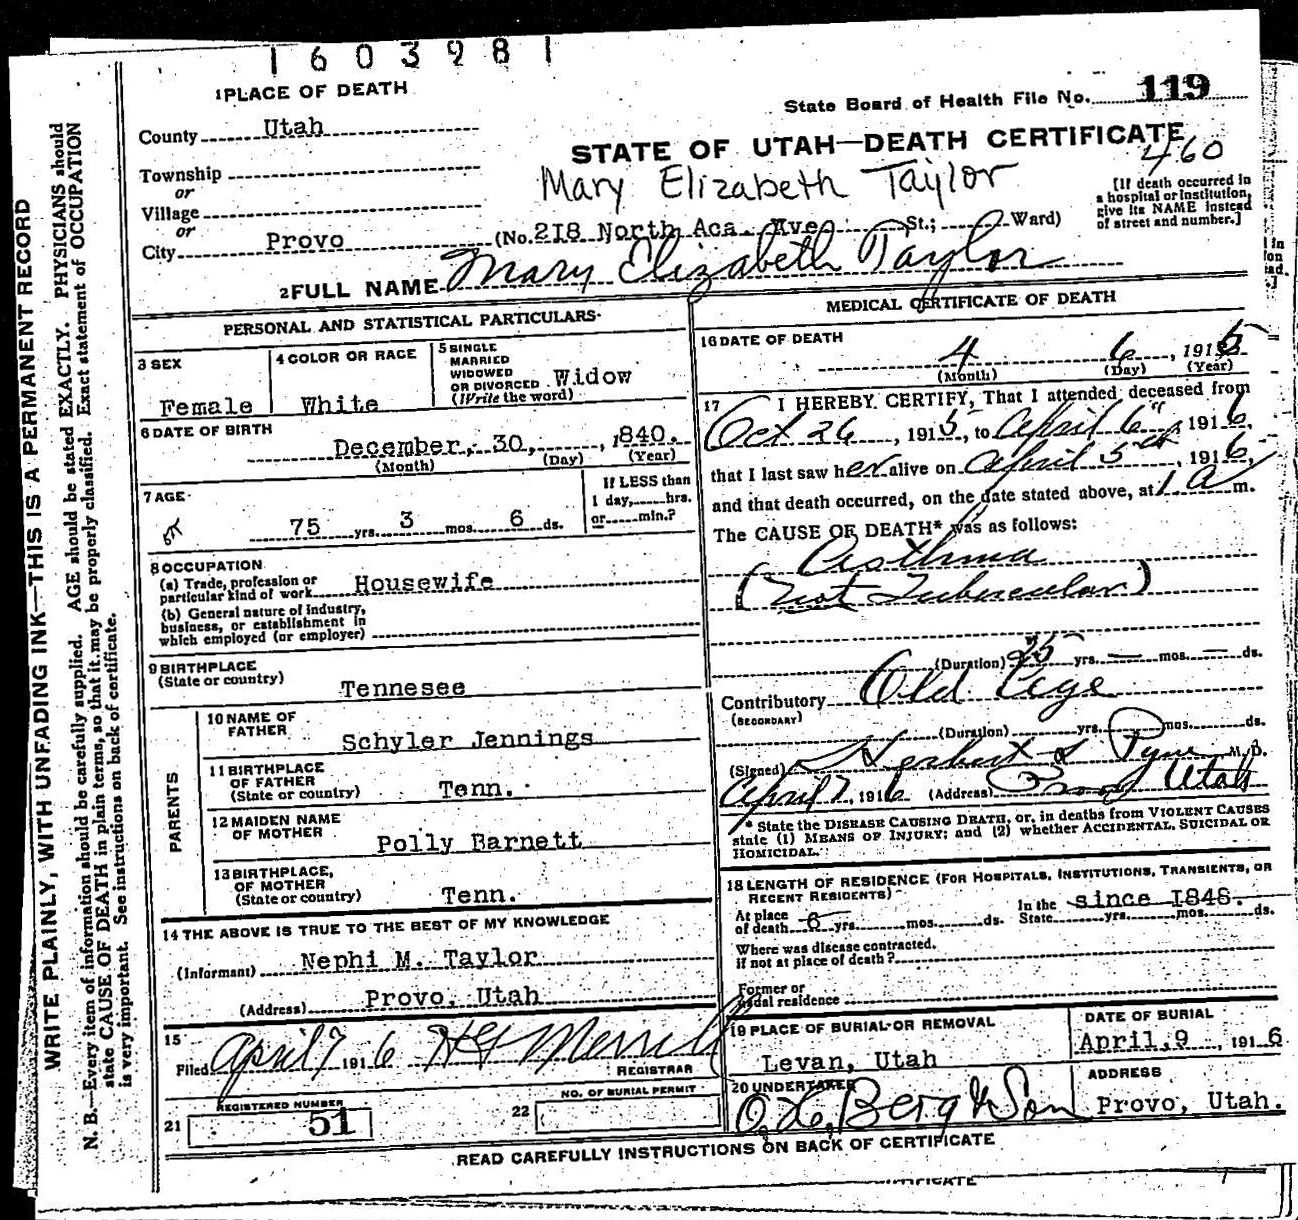 1603981
1 PLACE OF DEATH
State Board of Health File No. 119
County Utah
STATE OF UTAH—DEATH CERTIFICATE
460
Township
Mary Elizabeth Taylor
or
Village
or
City Provo (No. 218 North Aca. Ave St.; Ward)
[If death occurred in
a hospital or institution,
give its NAME instead
of street and number.]
2 FULL NAME Mary Elizabeth Taylor
PERSONAL AND STATISTICAL PARTICULARS
3 SEX
Female
4 COLOR OR RACE
White
5 SINGLE
MARRIED
WIDOWED
OR DIVORCED Widow
(Write the word)
6 DATE OF BIRTH
December, 30, 1840.
(Month) (Day) (Year)
7 AGE
75 yrs. 3 mos. 6 ds.
If LESS than
1 day, hrs.
or min.?
8 OCCUPATION
(a) Trade, profession or
particular kind of work Housewife
(b) General nature of industry,
business, or establishment in
which employed (or employer)
9 BIRTHPLACE
(State or country)
Tennesee
PARENTS
10 NAME OF
FATHER
Schyler Jennings
11 BIRTHPLACE
OF FATHER
(State or country) Tenn.
12 MAIDEN NAME
OF MOTHER
Polly Barnett
13 BIRTHPLACE,
OF MOTHER
(State or country) Tenn.
14 THE ABOVE IS TRUE TO THE BEST OF MY KNOWLEDGE
(Informant) Nephi M. Taylor
(Address) Provo, Utah
15
Filed April 7 1916 H G Merrill
REGISTRAR
21 REGISTERED NUMBER
51
22 NO. OF BURIAL PERMIT
MEDICAL CERTIFICATE OF DEATH
16 DATE OF DEATH
4 6, 191
(Month) (Day) (Year)
17 I HEREBY CERTIFY, That I attended deceased from
Oct 26, 1915, to April 6", 1916,
that I last saw her alive on April 5th, 1916,
and that death occurred, on the date stated above, at 1 a m.
The CAUSE OF DEATH* was as follows:
Asthma
(Not Tubercular)
(Duration) 25 yrs. — mos. — ds.
Contributory Old Age
(SECONDARY)
(Duration) yrs. mos. ds.
(Signed) Herbert S Pyne M. D.
April 7, 1916 (Address) Provo Utah
* State the DISEASE CAUSING DEATH, or, in deaths from VIOLENT CAUSES
state (1) MEANS OF INJURY; and (2) whether ACCIDENTAL, SUICIDAL OR
HOMICIDAL.
18 LENGTH OF RESIDENCE (FOR HOSPITALS, INSTITUTIONS, TRANSIENTS, OR
RECENT RESIDENTS)
At place
of death 6 yrs. mos. ds.
In the
State since 1848. yrs. mos. ds.
Where was disease contracted,
if not at place of death?
Former or
usual residence
19 PLACE OF BURIAL OR REMOVAL
Levan, Utah
DATE OF BURIAL
April, 9, 1916
20 UNDERTAKER
Berg & Son
ADDRESS
Provo, Utah.
READ CAREFULLY INSTRUCTIONS ON BACK OF CERTIFICATE
WRITE PLAINLY, WITH UNFADING INK—THIS IS A PERMANENT RECORD
N. B.—Every item of information should be carefully supplied. AGE should be stated EXACTLY. PHYSICIANS should
state CAUSE OF DEATH in plain terms, so that it may be properly classified. Exact statement of OCCUPATION
is very important. See instructions on back of certificate.